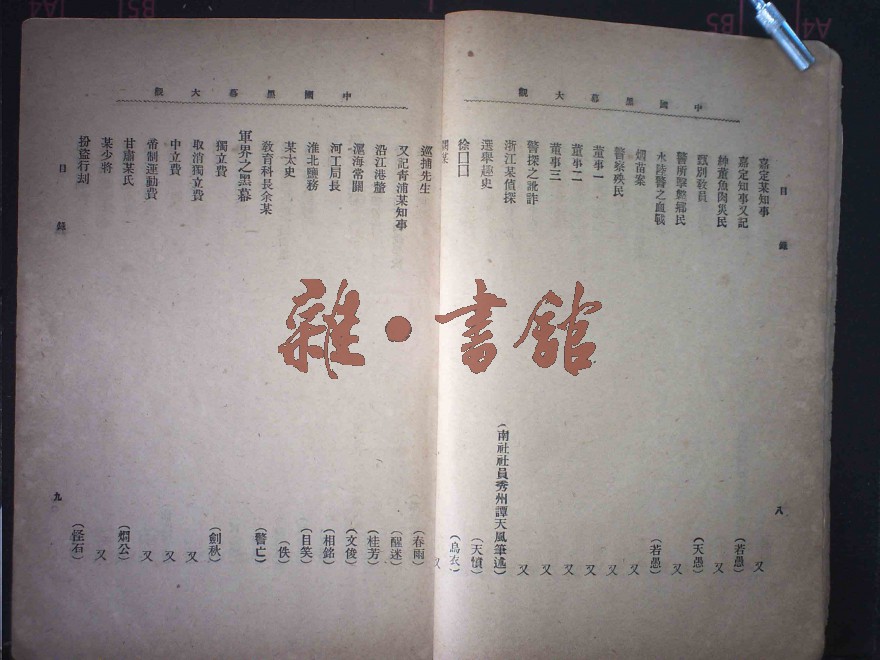 中國黑幕大觀
目錄
八
嘉定某知事 又
嘉定知事又記 (若愚)
紳董魚肉災民 又
甄別教員 (天愚)
警所擊斃鄉民 又
水陸警之血戰 (若愚)
烟苗案 又
警察殃民 又
董事一 又
董事二 又
董事三 又
警探之訛詐 又
浙江某偵探 (南社社員秀州譚天風筆述)
選舉趣史 (天憤)
徐□□ (烏衣)
某 又
巡捕先生 (春雨)
又記青浦某知事 (醒迷)
沿江港釐 (桂芳)
滬海常關 (文俊)
河工局長 (相銘)
淮北鹽務 (目笑)
某太史 (佚)
教育科長余某 (警亡)
軍界之黑幕
獨立費 (劍秋)
取消獨立費 又
中立費 又
帝制運動費 又
甘肅某氏 (烱公)
某少將 又
扮盜行刦 (怪石)
中國黑幕大觀
目錄
九
雜·書館
A4
B5
B5
A4